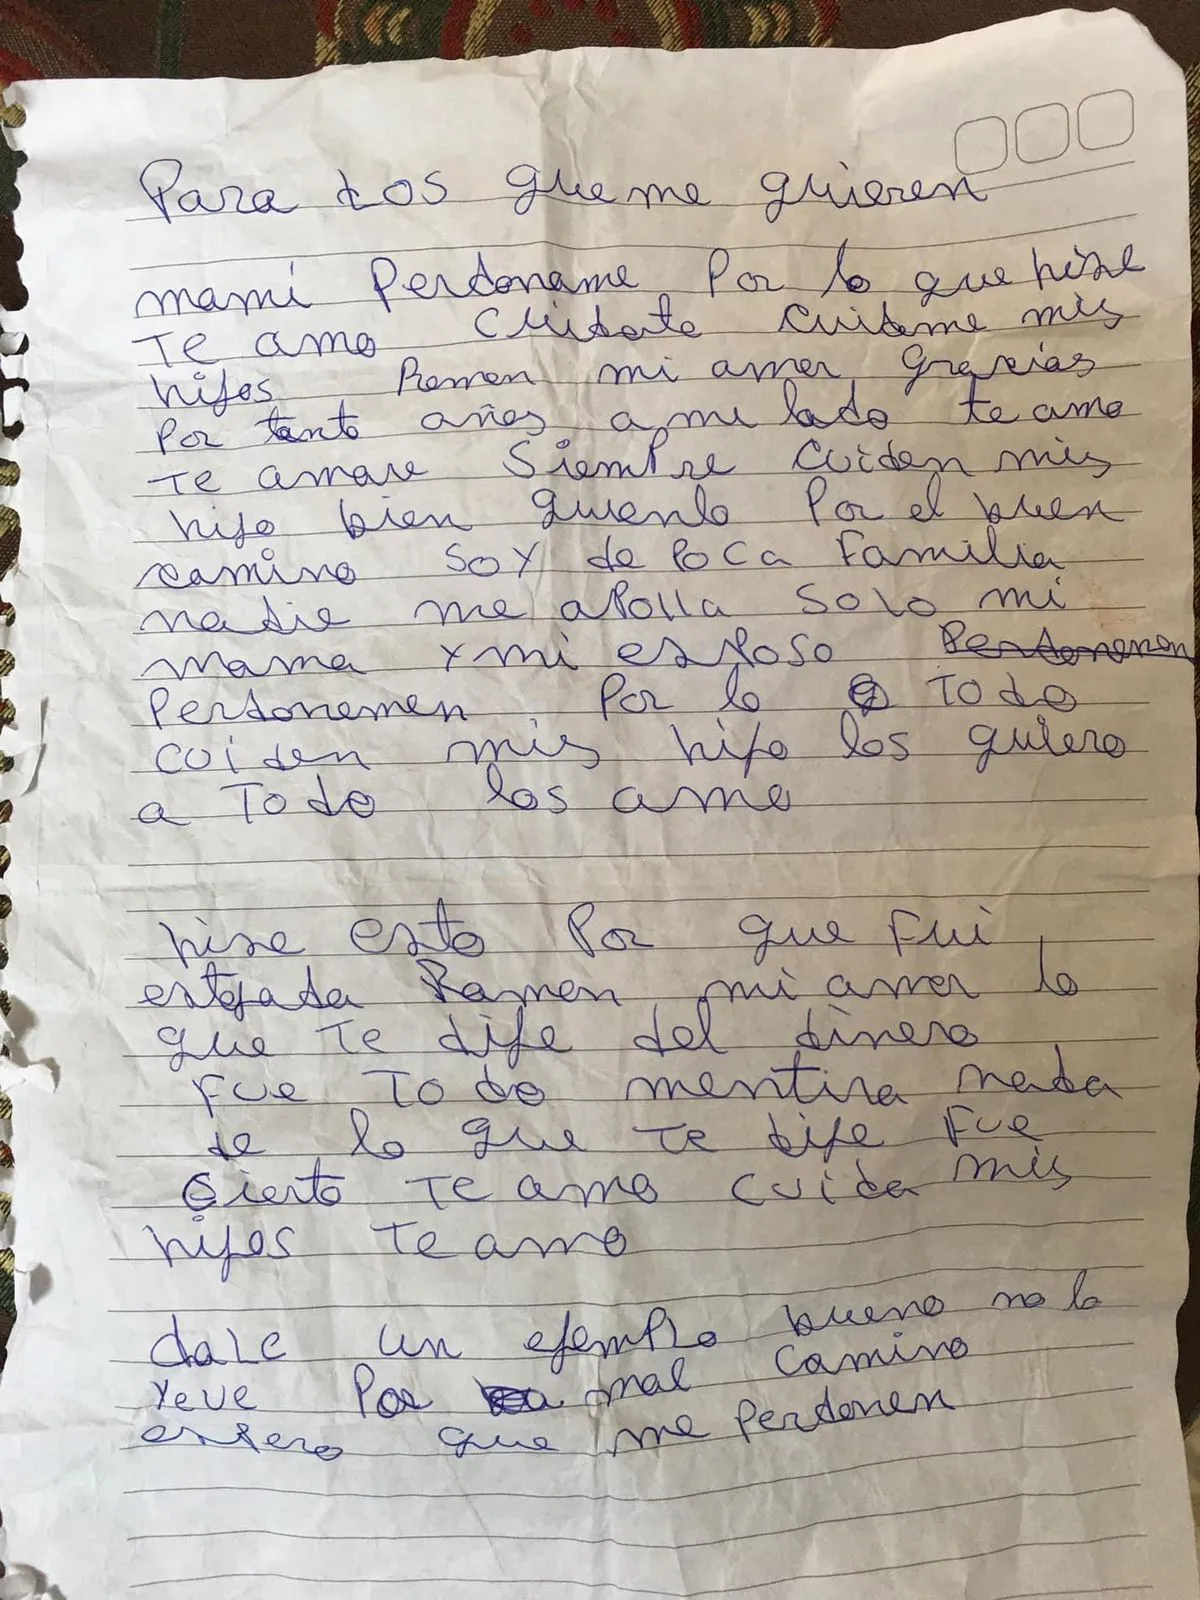 Para los que me quieren
mami Perdoname Por lo que hise
Te amo Cuidate cuideme mis
hijos Ramon mi amor Grasias
Por tanto años a mi lado te amo
Te amare Siempre cuiden mis
hijo bien guienlo Por el buen
camino soy de Poca Familia
nadie me apolla solo mi
mama y mi esposo Perdonenen
Perdonemen Por lo Todo
cuiden mis hijo los quiero
a Todo los amo
hise esto Por que Fui
estafada Ramon mi amor lo
que Te dije del dinero
Fue Todo mentira nada
de lo que Te dije Fue
sierto Te amo cuida mis
hijos Te amo
dale un ejemplo bueno no lo
yeve Por mal camino
espero que me Perdonen